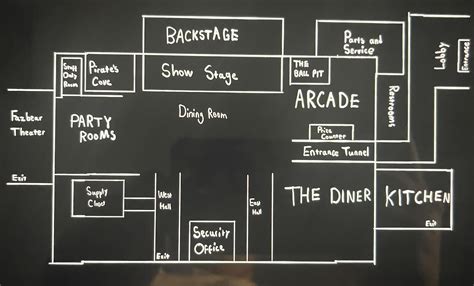 BACKSTAGE
Parts and
Service
Lobby
Entrance
Staff
Only
Room
Pirate's
Cove
Show Stage
THE
BALL PIT
ARCADE
Restrooms
Fazbear
Theater
PARTY
ROOMS
Dining Room
Prize
Counter
Entrance Tunnel
Exit
Supply
Closet
West
Hall
East
Hall
THE DINER
KITCHEN
Security
Office
Exit
Exit